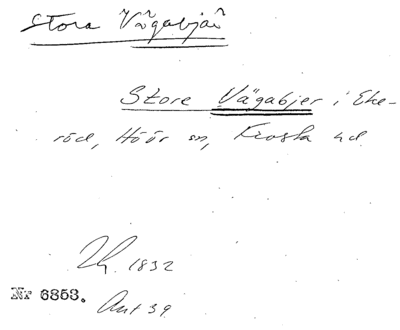 Stora Vägabjär
Store Vägabjer i Eke-
röd, Höör sn, Frosta hd.
1832
Nr 6853.
Ant 39